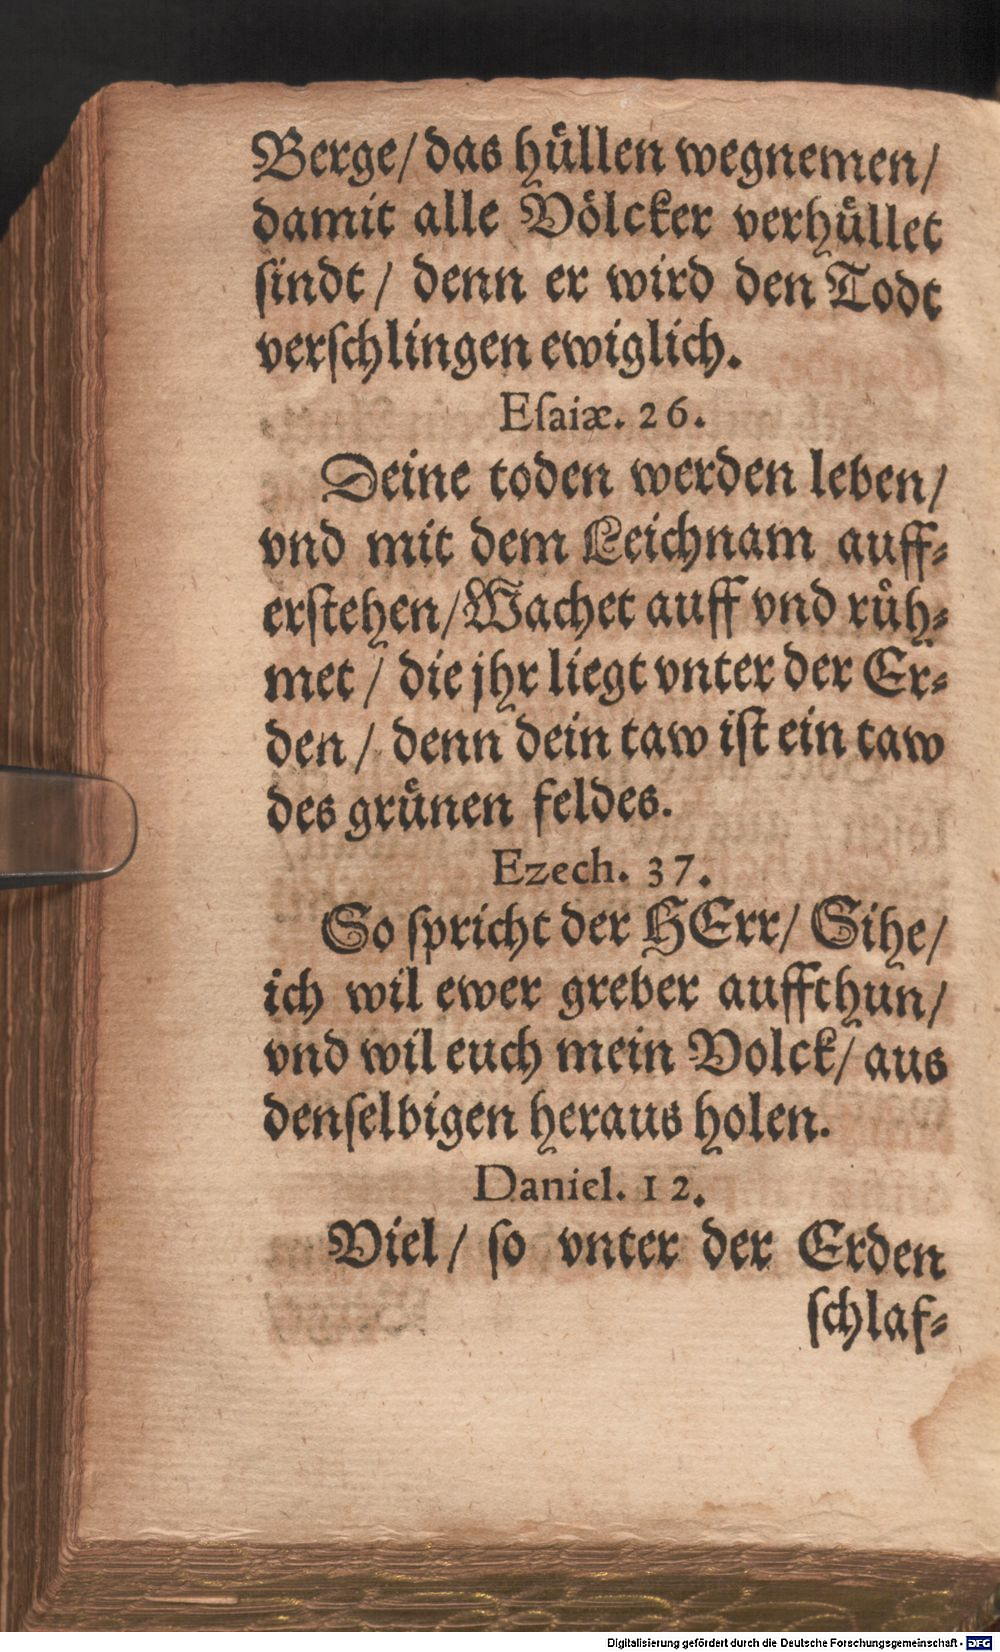 Berge/ das huͤllen wegnemen/
damit alle Voͤlcker verhuͤllet
sindt/ denn er wird den Todt
verſchlingen ewiglich.
Eſaiæ. 26.
Deine toden werden leben/
vnd mit dem Leichnam auff⸗
erſtehen/ Wachet auff vnd ruͤh⸗
met/ die jhr liegt vnter der Er⸗
den/ denn dein taw iſt ein taw
des gruͤnen feldes.
Ezech. 37.
So ſpricht der HErr/ Sihe/
ich wil ewer greber auffthun/
vnd wil euch mein Volck/ aus
denſelbigen heraus holen.
Daniel. 12.
Viel/ ſo vnter der Erden
ſchlaf⸗
Digitalisierung gefördert durch die Deutsche Forschungsgemeinschaft - DFG